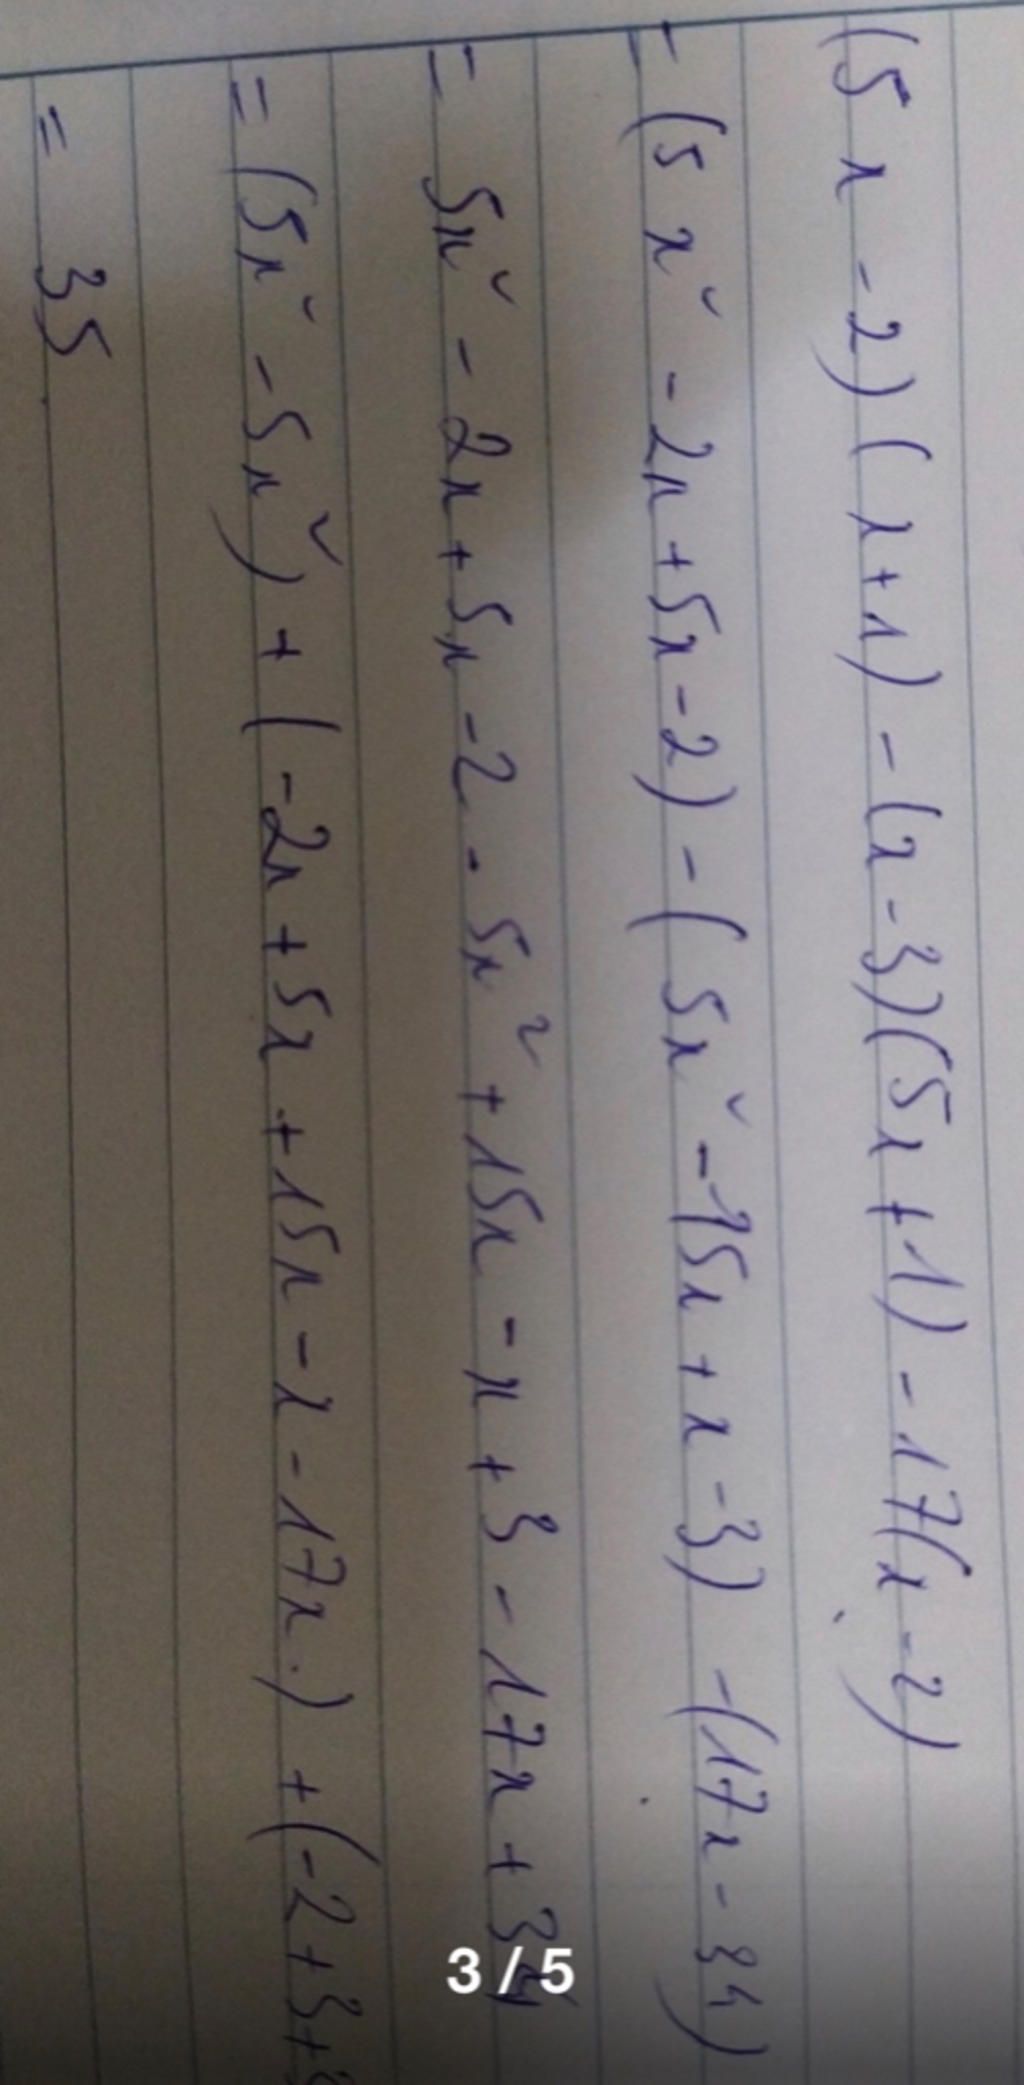 (5x - 2)(x+1) - (x - 3)(5x + 1) - 17(x - 2)
= (5x² - 2x + 5x - 2) - (5x² - 15x + x - 3) - (17x - 34)
= 5x² - 2x + 5x - 2 - 5x² + 15x - x + 3 - 17x + 34
= (5x² - 5x²) + (-2x + 5x + 15x - x - 17x) + (-2 + 3 +
= 35
3 / 5